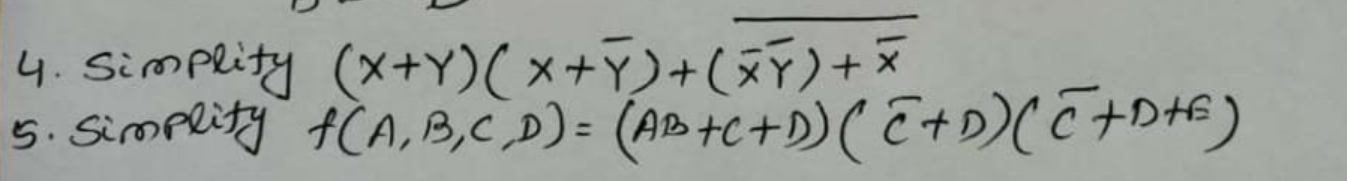 4. Simplity (X+Y)(X+Y̅)+(\overline{X̅Y̅)+X̅}
5. Simplity f(A,B,C,D)=(AB+C+D)(C̅+D)(C̅+D+E)